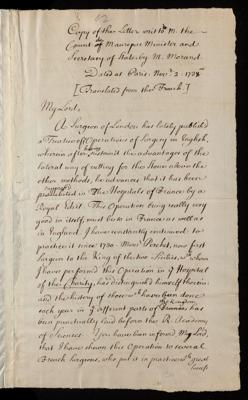 12
Copy of the Letter writ to M. the
Count of Maurepas Minister and
Secretary of State by M. Morand.
Dated at Paris. Nov.r 2. 1738
[Translated from the French.]
My Lord,
A Surgeon of London has lately publish'd
a Treatise of Operations of Surgery in English,
wherein after the advantages of the
lateral way of cutting for the Stone above the
other methods, he advances that it has been
prohibited in the Hospitals of France by a
Royal Edit. The Operation being really very
good in itself, must be so in France as well as
in England. I have constantly continued to
practice it since 1730. Mons.r Perchet, now first
Surgeon to the King of the two Sicilies, whom
I have performed this Operation in y.e Hospital
of the Charity, has distinguish'd himself therein:
and the history of those w.ch have been done
each year in y.e different parts of
has been punctually laid before the R. Academy
of Sciences. You have been inform'd My Lord,
that I have shewn this Operation to several
French Surgeons, who put it in practice w.th great